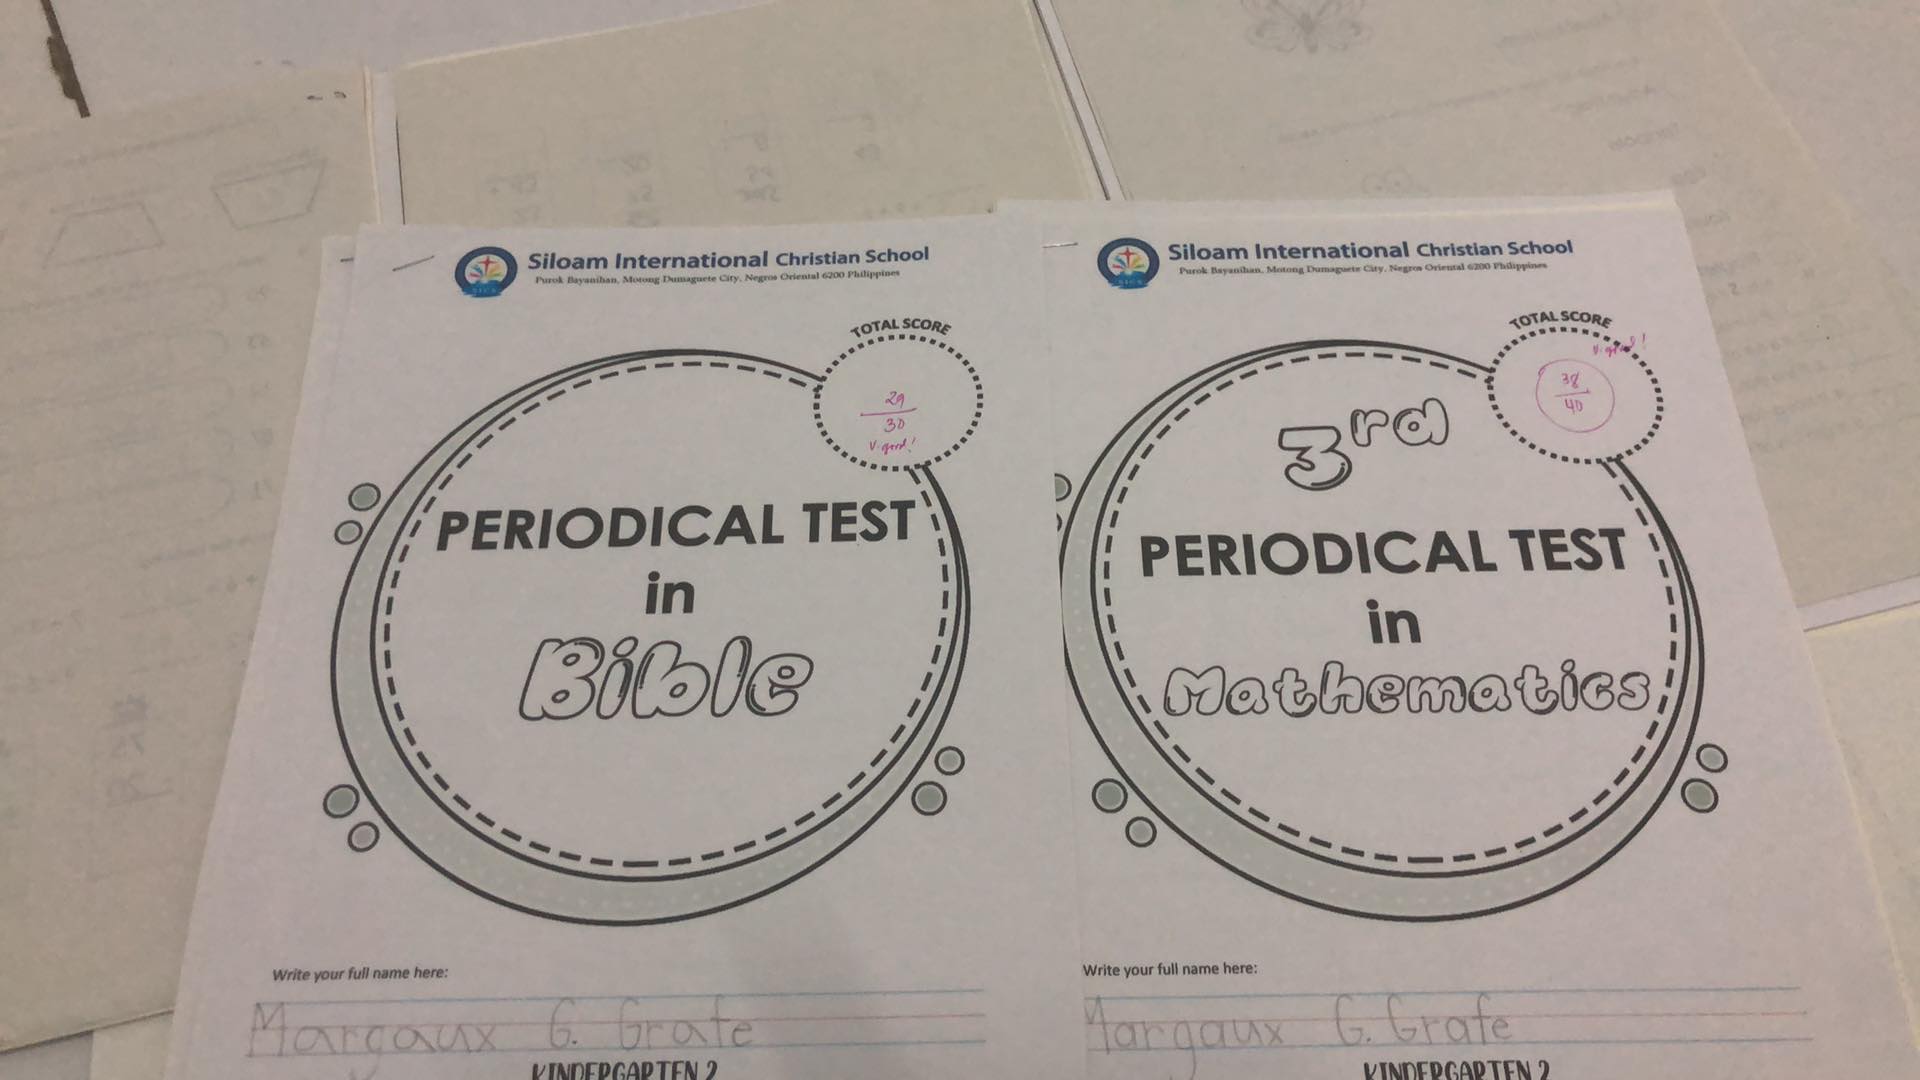 Siloam International Christian School
Purok Bayanihan, Motong Dumaguete City, Negros Oriental 6200 Philippines
TOTAL SCORE
29
30
V. good!
PERIODICAL TEST
in
Bible
Write your full name here:
Margaux G. Grafe
KINDERGARTEN 2
Siloam International Christian School
Purok Bayanihan, Motong Dumaguete City, Negros Oriental 6200 Philippines
TOTAL SCORE
V. good!
38
40
3rd
PERIODICAL TEST
in
Mathematics
Write your full name here:
Margaux G. Grafe
KINDERGARTEN 2